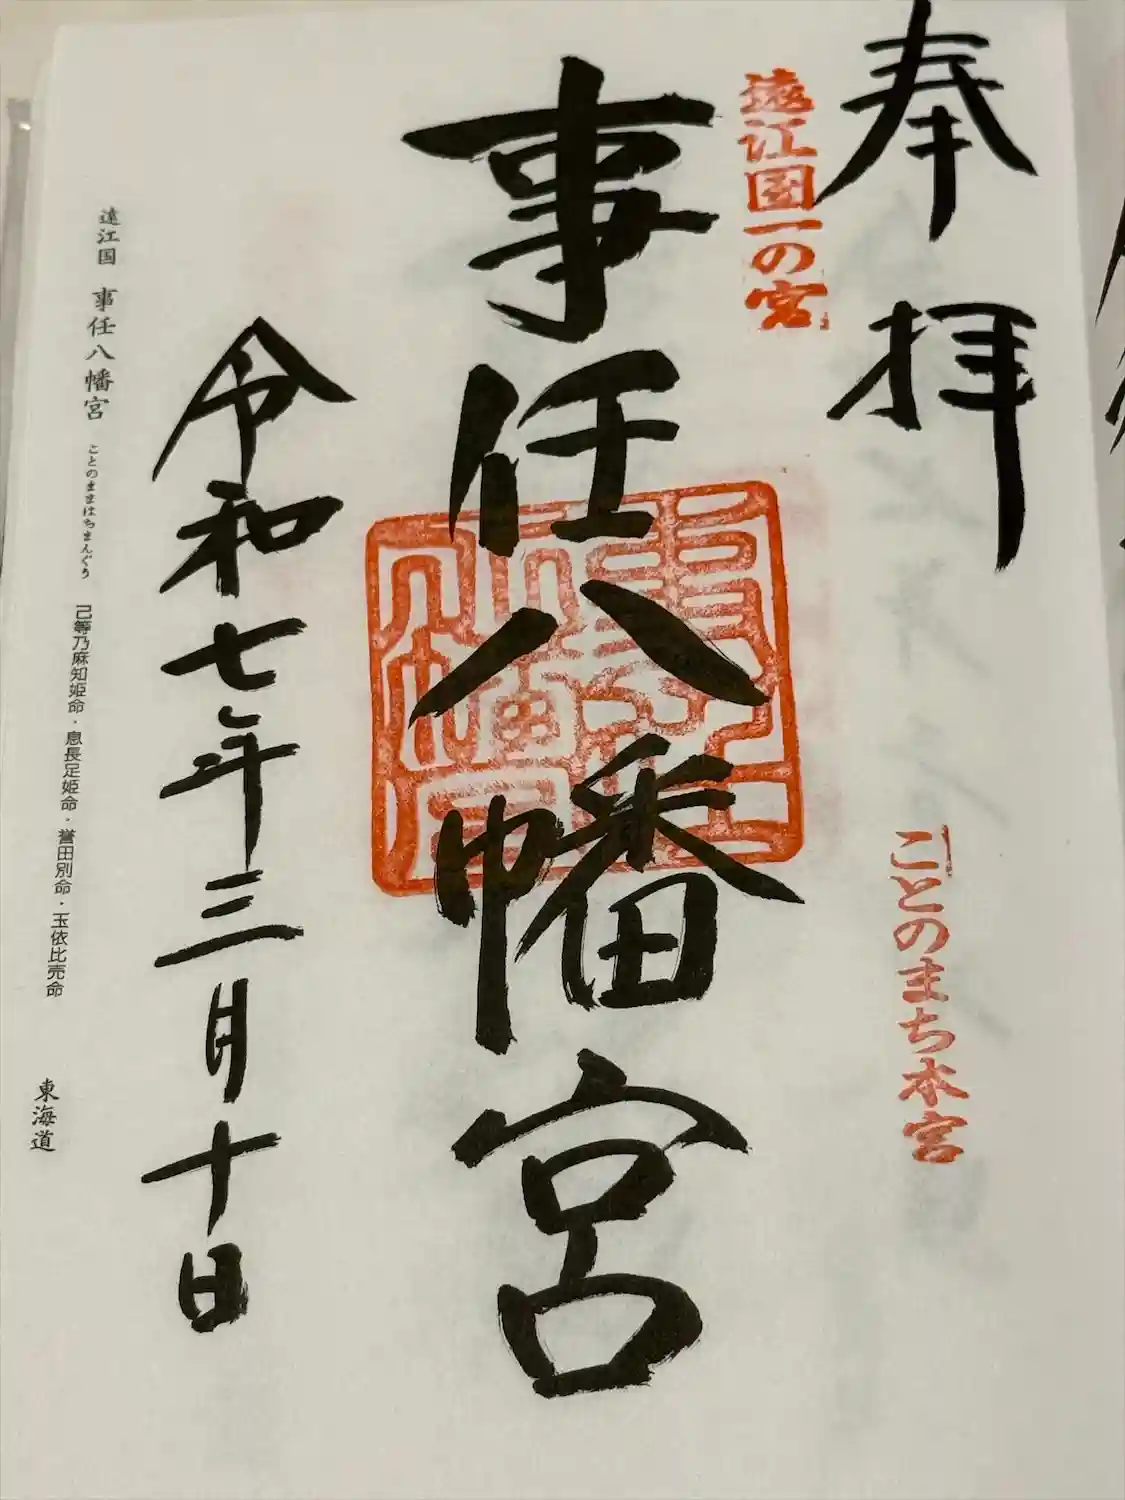 奉拝
遠江国一の宮
ことのまち本宮
事任八幡宮
令和七年三月十日
遠江国 事任八幡宮 ことのままはちまんぐう 己等乃麻知姫命・息長足姫命・誉田別命・玉依比売命 東海道